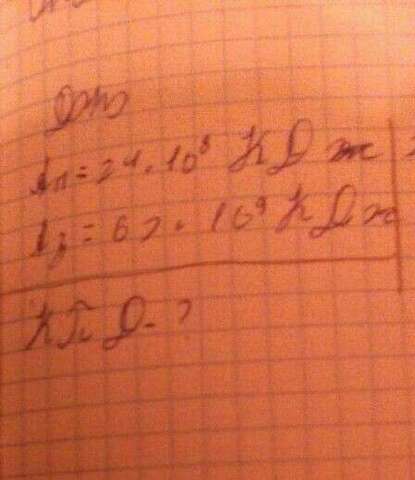 Дано
Aп = 24 · 10⁸ КДж
Aз = 62 · 10⁹ КДж
КПД - ?